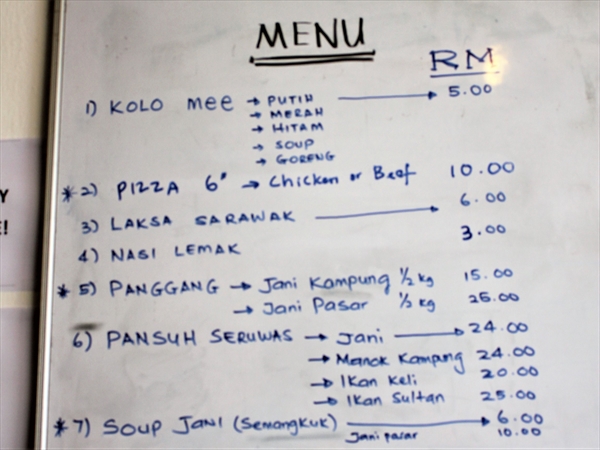 MENU
RM
1) KOLO mee → PUTIH → 5.00
→ MERAH
→ HITAM
→ SOUP
→ GORENG
*2) PIZZA 6" → Chicken or Beef 10.00
3) LAKSA SARAWAK → 6.00
4) NASI LEMAK 3.00
*5) PANGGANG → Jani Kampung 1/2 kg 15.00
→ Jani Pasar 1/2 kg 25.00
6) PANSUH SERUWAS → Jani → 24.00
→ Manok Kampung 24.00
→ Ikan Keli 20.00
→ Ikan Sultan 25.00
*7) SOUP JANI (Semangkuk) → 6.00
Jani pasar 10.00
Y
E!